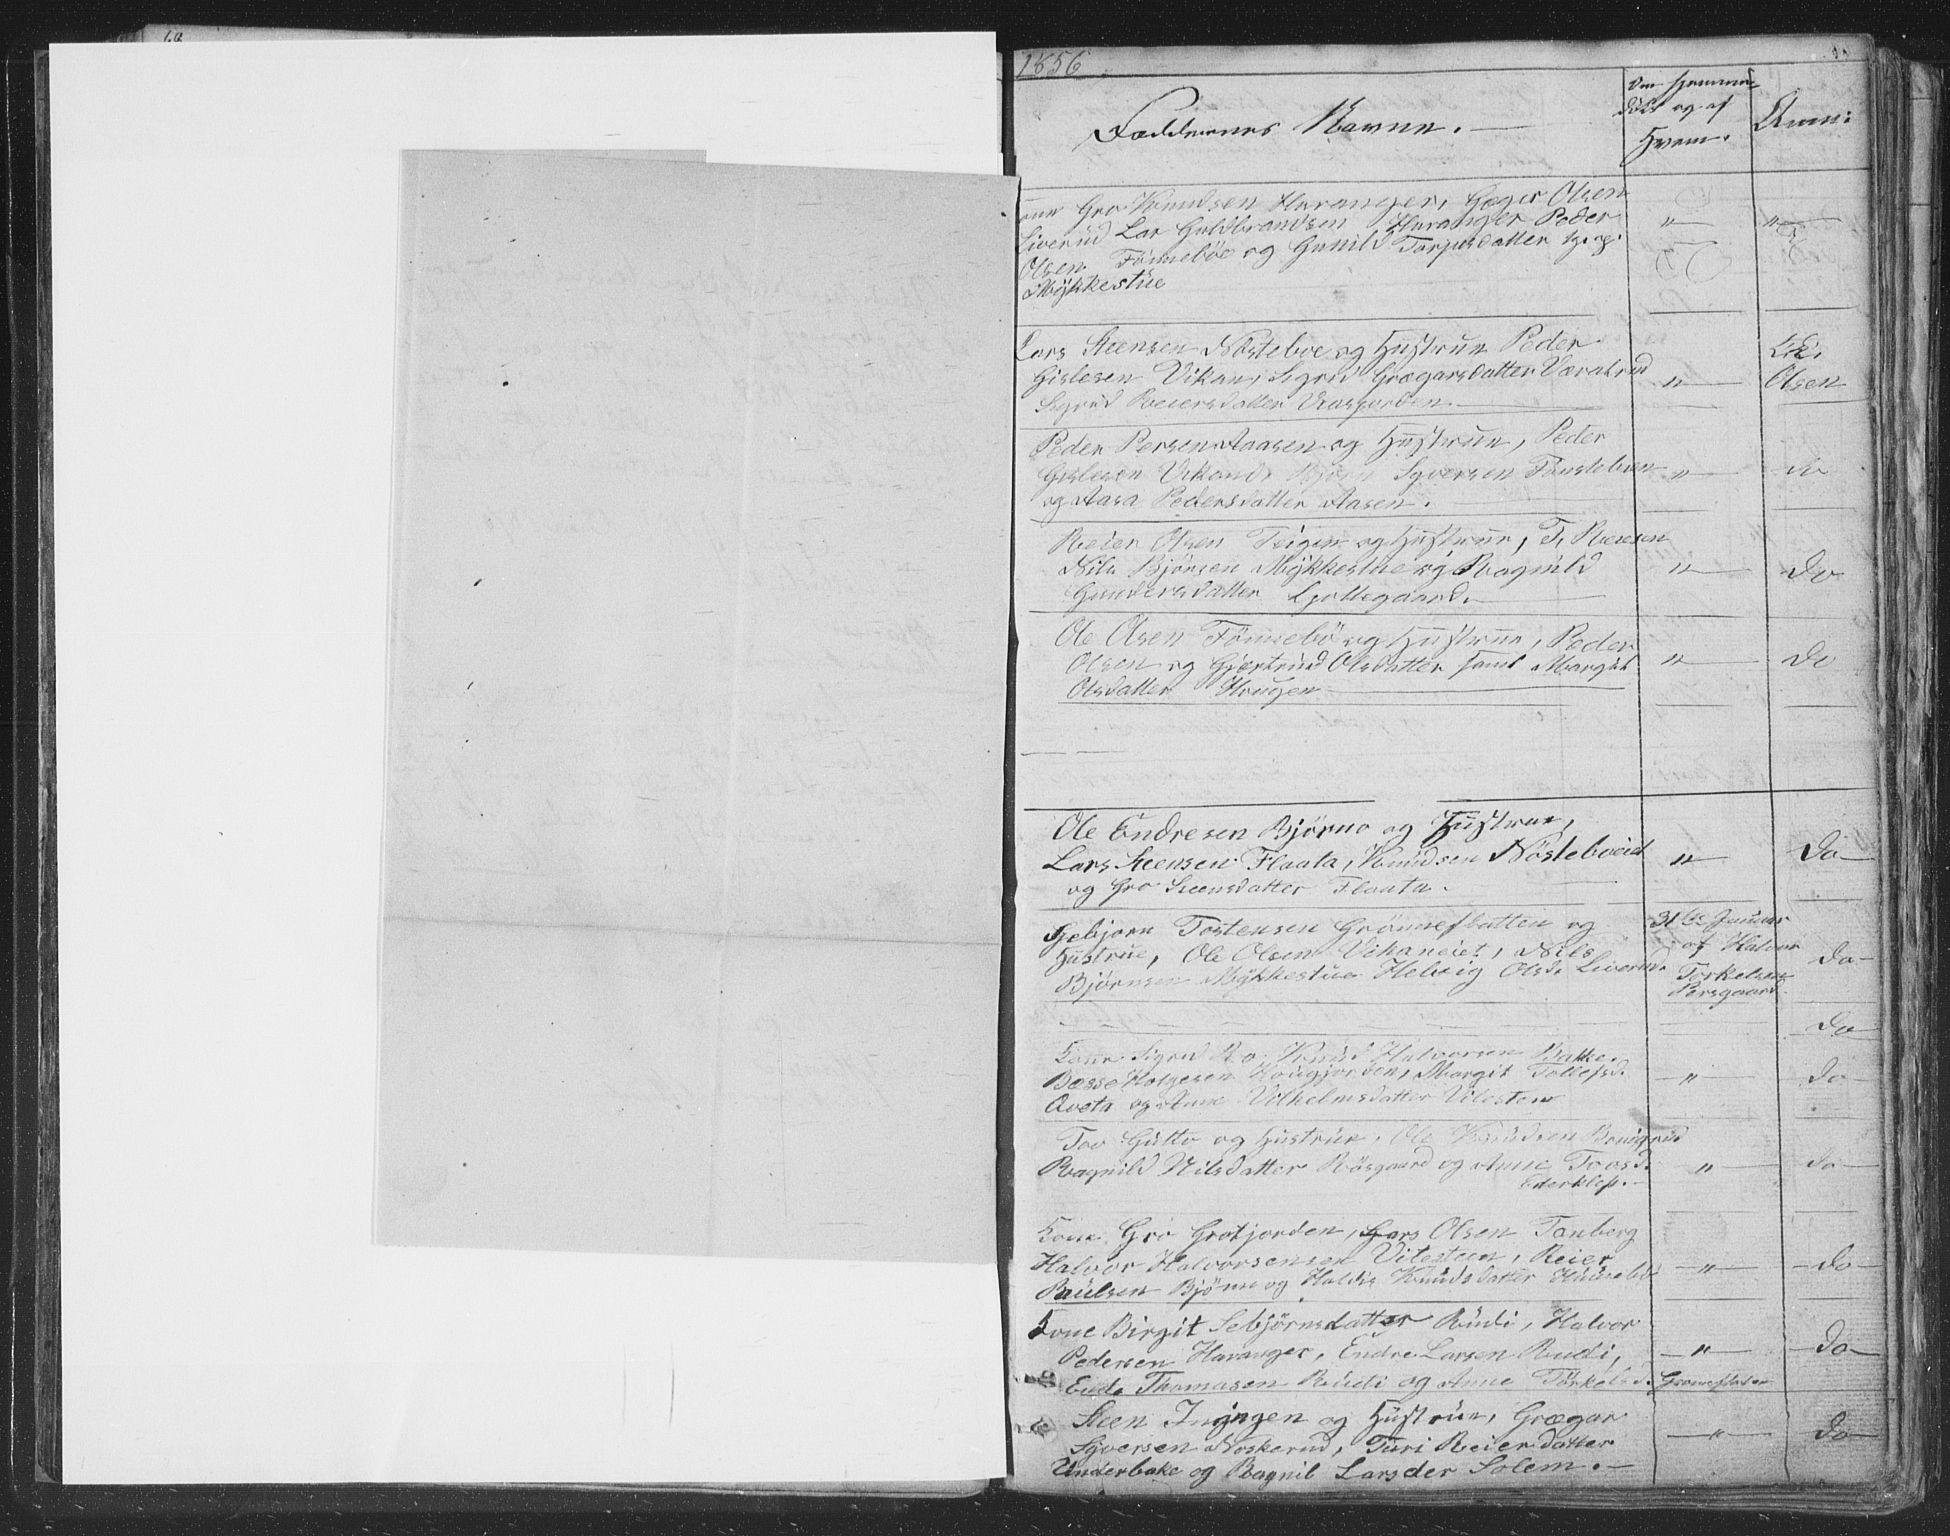 68
1856
Faddernes Navne.
Om hjemme
døbt og af
Hvem.
Anm:
Gro Knudsen Haranger, Græger Olsen
Liverud Lar Guldbrandsen Haranger Peder
Olsen Fönneböe og Gunild Torgusdatter
Mykkestüe
" "
Lars Steensen Nösteboe og Hustrue Peder
Gislesen Vikan, Sigrid Grægarsdatter Væralrud
Sigrid Reiersdatter
"
Olsen
Peder Persen Aaasen og Hustrue, Peder
Gislesen Vikand, Syversen
og Aasa Pedersdatter Aasen.
" do
Reier Olsen Teigen og Hustrue, T. Reiersen
Nils Bjørnsen Mykkestue og Ragnild
Gundersdatter Gottegaard.
" do
Ole Olsen Fönnebö og Hustrue, Peder
Olsen og Gjertrud Olsdatter samt Margit
Olsdatter Haugen
" do
Ole Endresen Bjørno og Hustrue,
Lars Steensen Flaata, Knudsen Nösteboeid
og Gro Steensdatter Flaata.
" do
Sebjörn Tostensen Grönneflatten og
Hustrue, Ole Olsen Vikaneiet, Nils
Bjørnsen Mykkestue Helvig Olsd. Liverud.
31te Januar
af Halvor
Torkelsen
Persgaard.
do
do
Kone Sigrid Ro Knud Halvorsen Bakke.
Bosse Holgesen Haugjorden, Margit Tollefsd.
Aveta og Anne Vilhelmsdatter Vilesten
" do
Tov Gutto og Hustrue, Ole Knudsen
Ragnild Nilsdatter Røsgaard og Anne Tovsd.
Ederklep.
" do
Kone Gro Grotjorden, Lars Olsen Tanberg
Halvor Halvorsensen Vitesteen, Reier
Paulsen Björne og Haldis Knudsdatter
" do
Kone Birgit Sebjörnsdatter Rudi, Halvor
Pedersen Haranger, Endre Larsen Rudi,
Thomasen Rudi og Anne Torkelsd. Gröneflaten
" do
Steen Ingngen og Hustrue, Grægar
Syversen Noskerud, Turi Reierdatter
Underbake og Ragnil Larsder Solem.
" do